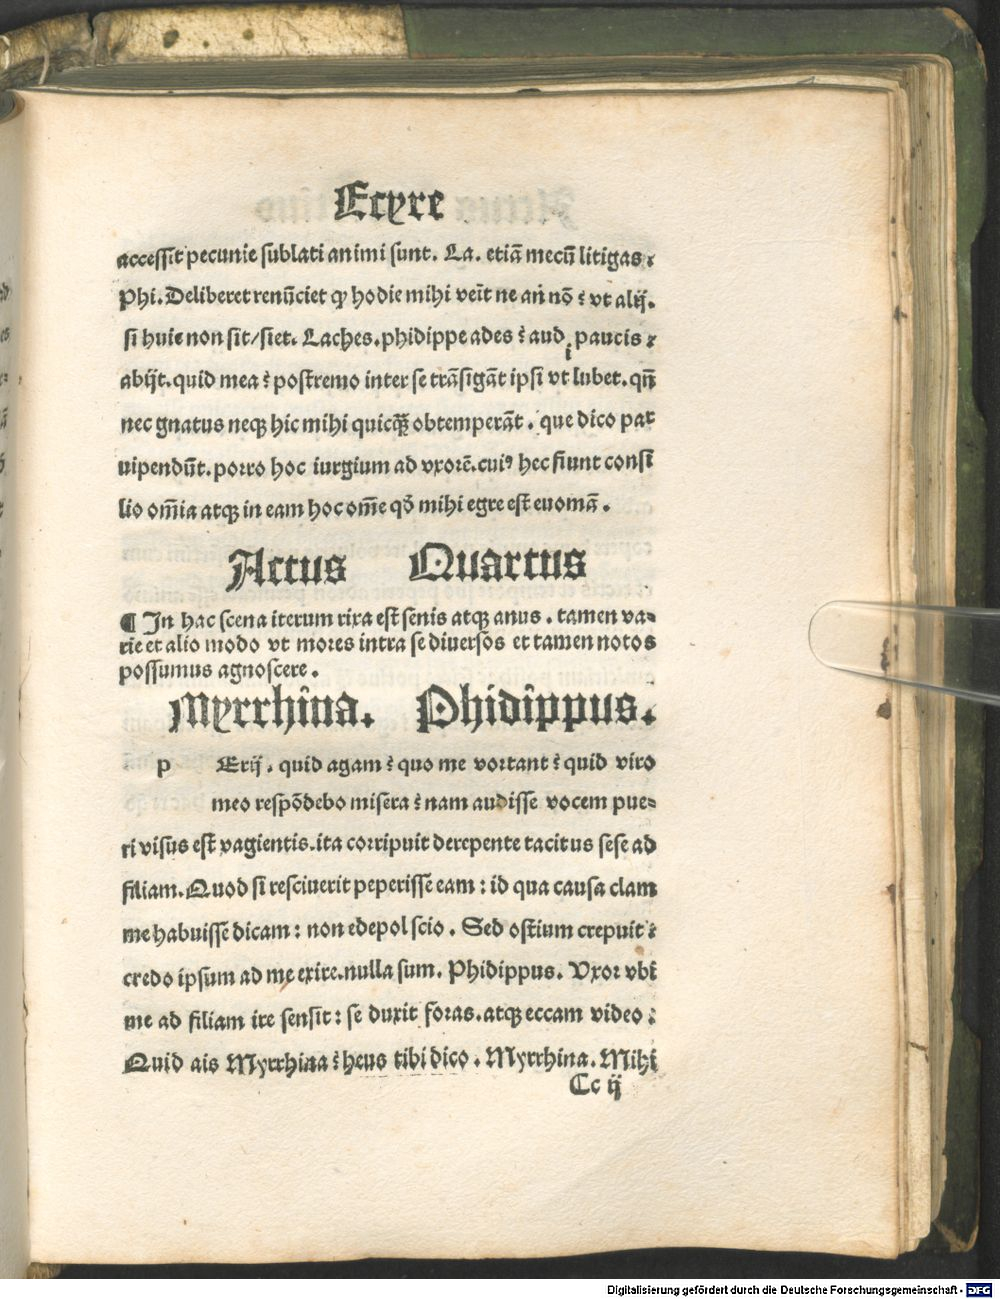 Ecyre
accessit pecunie sublati animi sunt. La. etiā mecū litigas?
Phi. Deliberet renūciet qꝫ hodie mihi velit ne an nō? vt alij.
si huic non sit/siet. Laches. phidippe ades? audi paucis?
abijt. quid mea? postremo inter se trāsigāt ipsi vt lubet. qn̄
nec gnatus neqꝫ hic mihi quicqꝫ obtemperāt. que dico par
uipendūt. porro hoc iurgium ad vxorē. cuiꝰ hec fiunt consi
lio om̄ia atqꝫ in eam hoc om̄e qd̄ mihi egre est euomā.
Actus Quartus
¶ In hac scena iterum rixa est senis atqꝫ anus. tamen va-
rie et alio modo vt mores intra se diuersos et tamen notos
possumus agnoscere.
Myrrhina. Phidippus.
p Erij. quid agam? quo me vortant? quid viro
meo respōdebo misera? nam audisse vocem pue-
ri visus est vagientis. ita corripuit derepente tacitus sese ad
filiam. Quod si resciuerit peperisse eam: id qua causa clam
me habuisse dicam: non edepol scio. Sed ostium crepuit?
credo ipsum ad me exire. nulla sum. Phidippus. Vxor vbi
me ad filiam ire sensit: se duxit foras. atqꝫ eccam video:
Quid ais Myrrhina? heus tibi dico. Myrrhina. Mihi
Cc ij
Digitalisierung gefördert durch die Deutsche Forschungsgemeinschaft - DFG